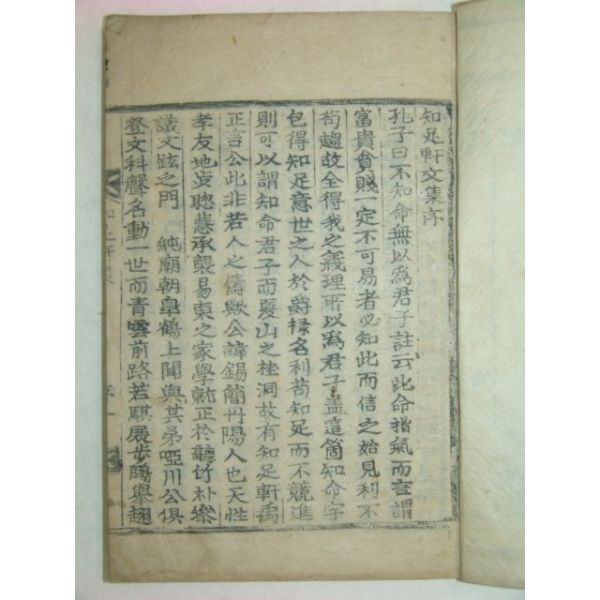 知足軒文集序
孔子曰不知命無以爲君子註云此命指氣而言謂
富貴貧賤一定不可易者必知此而信之始見利不
苟趨故全得我之義理所以爲君子盖這箇知命字
包得知足意世之人於爵祿名利苟知足而不競進
則可以謂知命君子而夏山之桂洞故有知足軒禹
正言公此非若人之儔歟公諱錫簡丹陽人也天性
孝友地步聰慧承襲易東之家學就正於聽竹朴樂
議文鉉之門 純廟朝皐鶴上聞與其弟啞川公俱
登文科聲名動一世而青雲前路若騏展步鵬擧趐